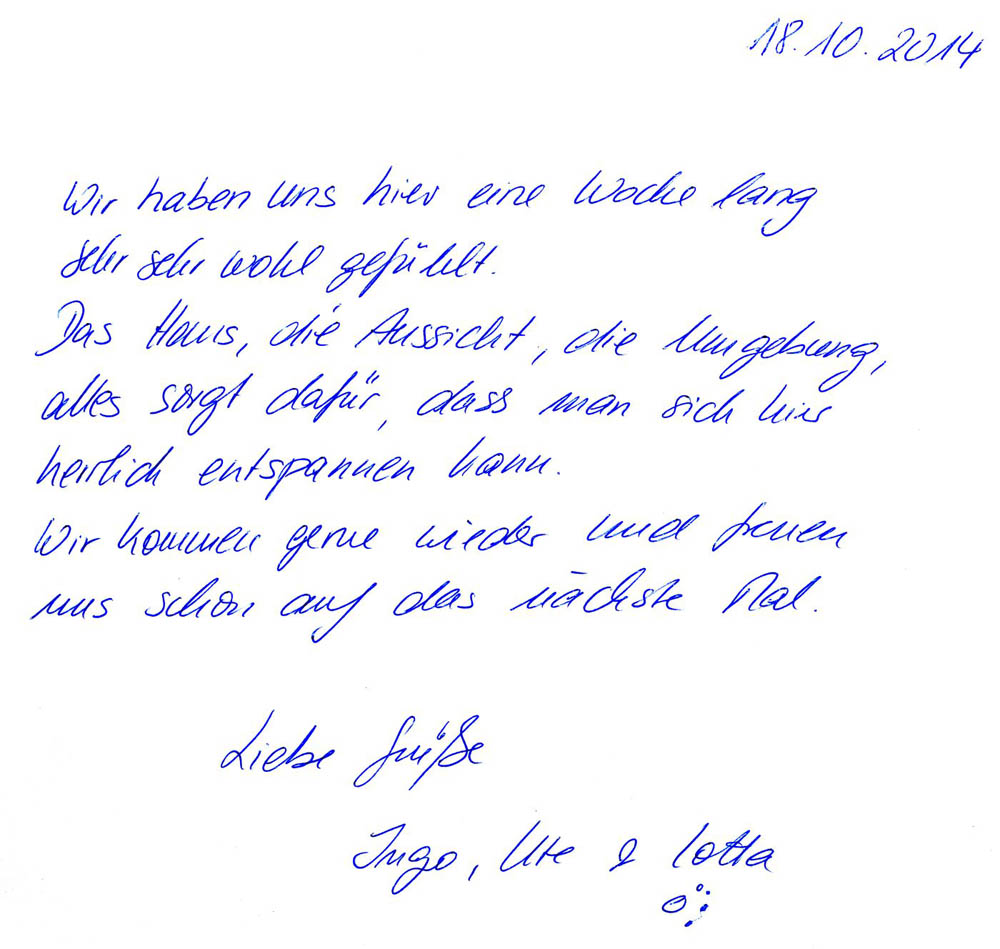 18.10.2014
Wir haben uns hier eine Woche lang
sehr sehr wohl gefühlt.
Das Haus, die Aussicht, die Umgebung,
alles sorgt dafür, dass man sich hier
herrlich entspannen kann.
Wir kommen gerne wieder und freuen
uns schon auf das nächste Mal.
Liebe Grüße
Ingo, Ute & Lotta